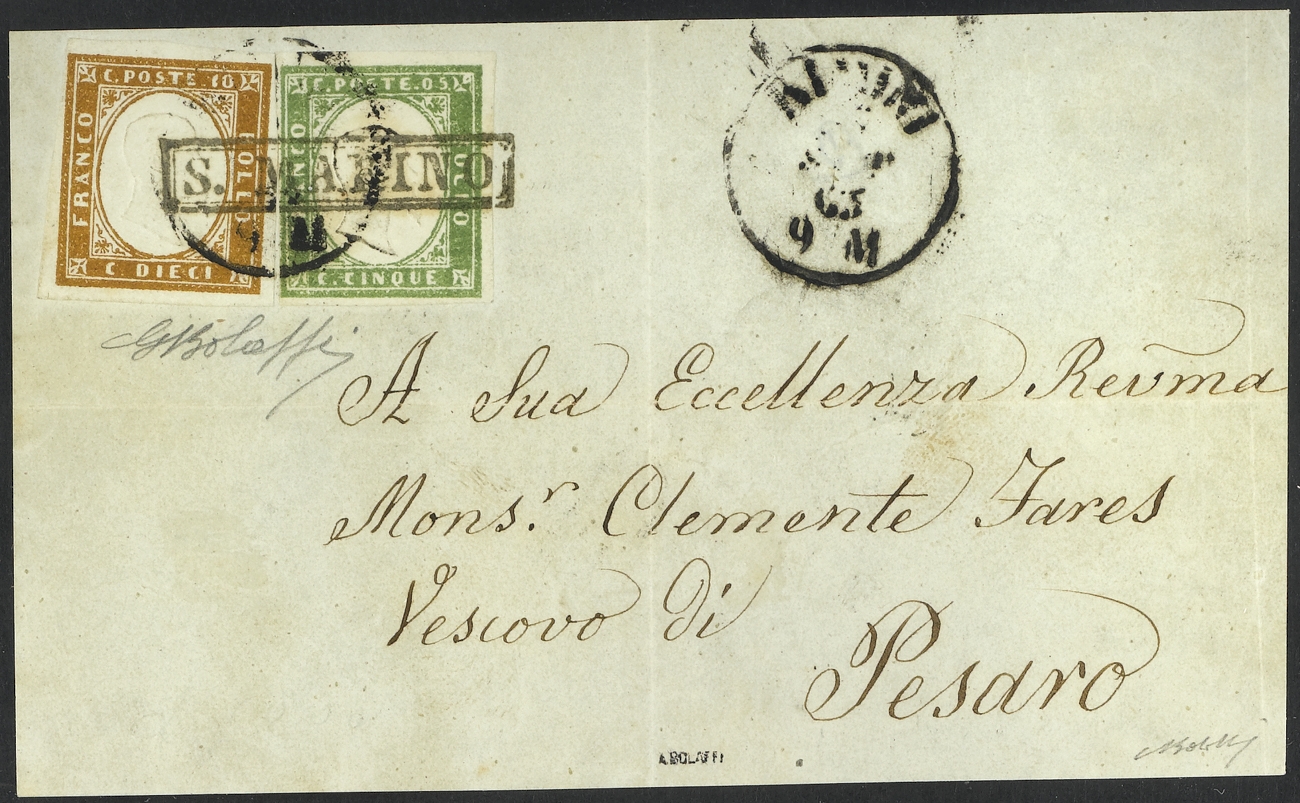 C. POSTE. 10
FRANCO
BOLLO
C DIECI
C. POSTE. 05
FRANCO
BOLLO
C. CINQUE
S. MARINO
9 M
RIMINI
63
9 M
GBolaffi
A Sua Eccellenza Revma
Mons.r Clemente Fares
Vescovo di
Pesaro
A. BOLAFFI